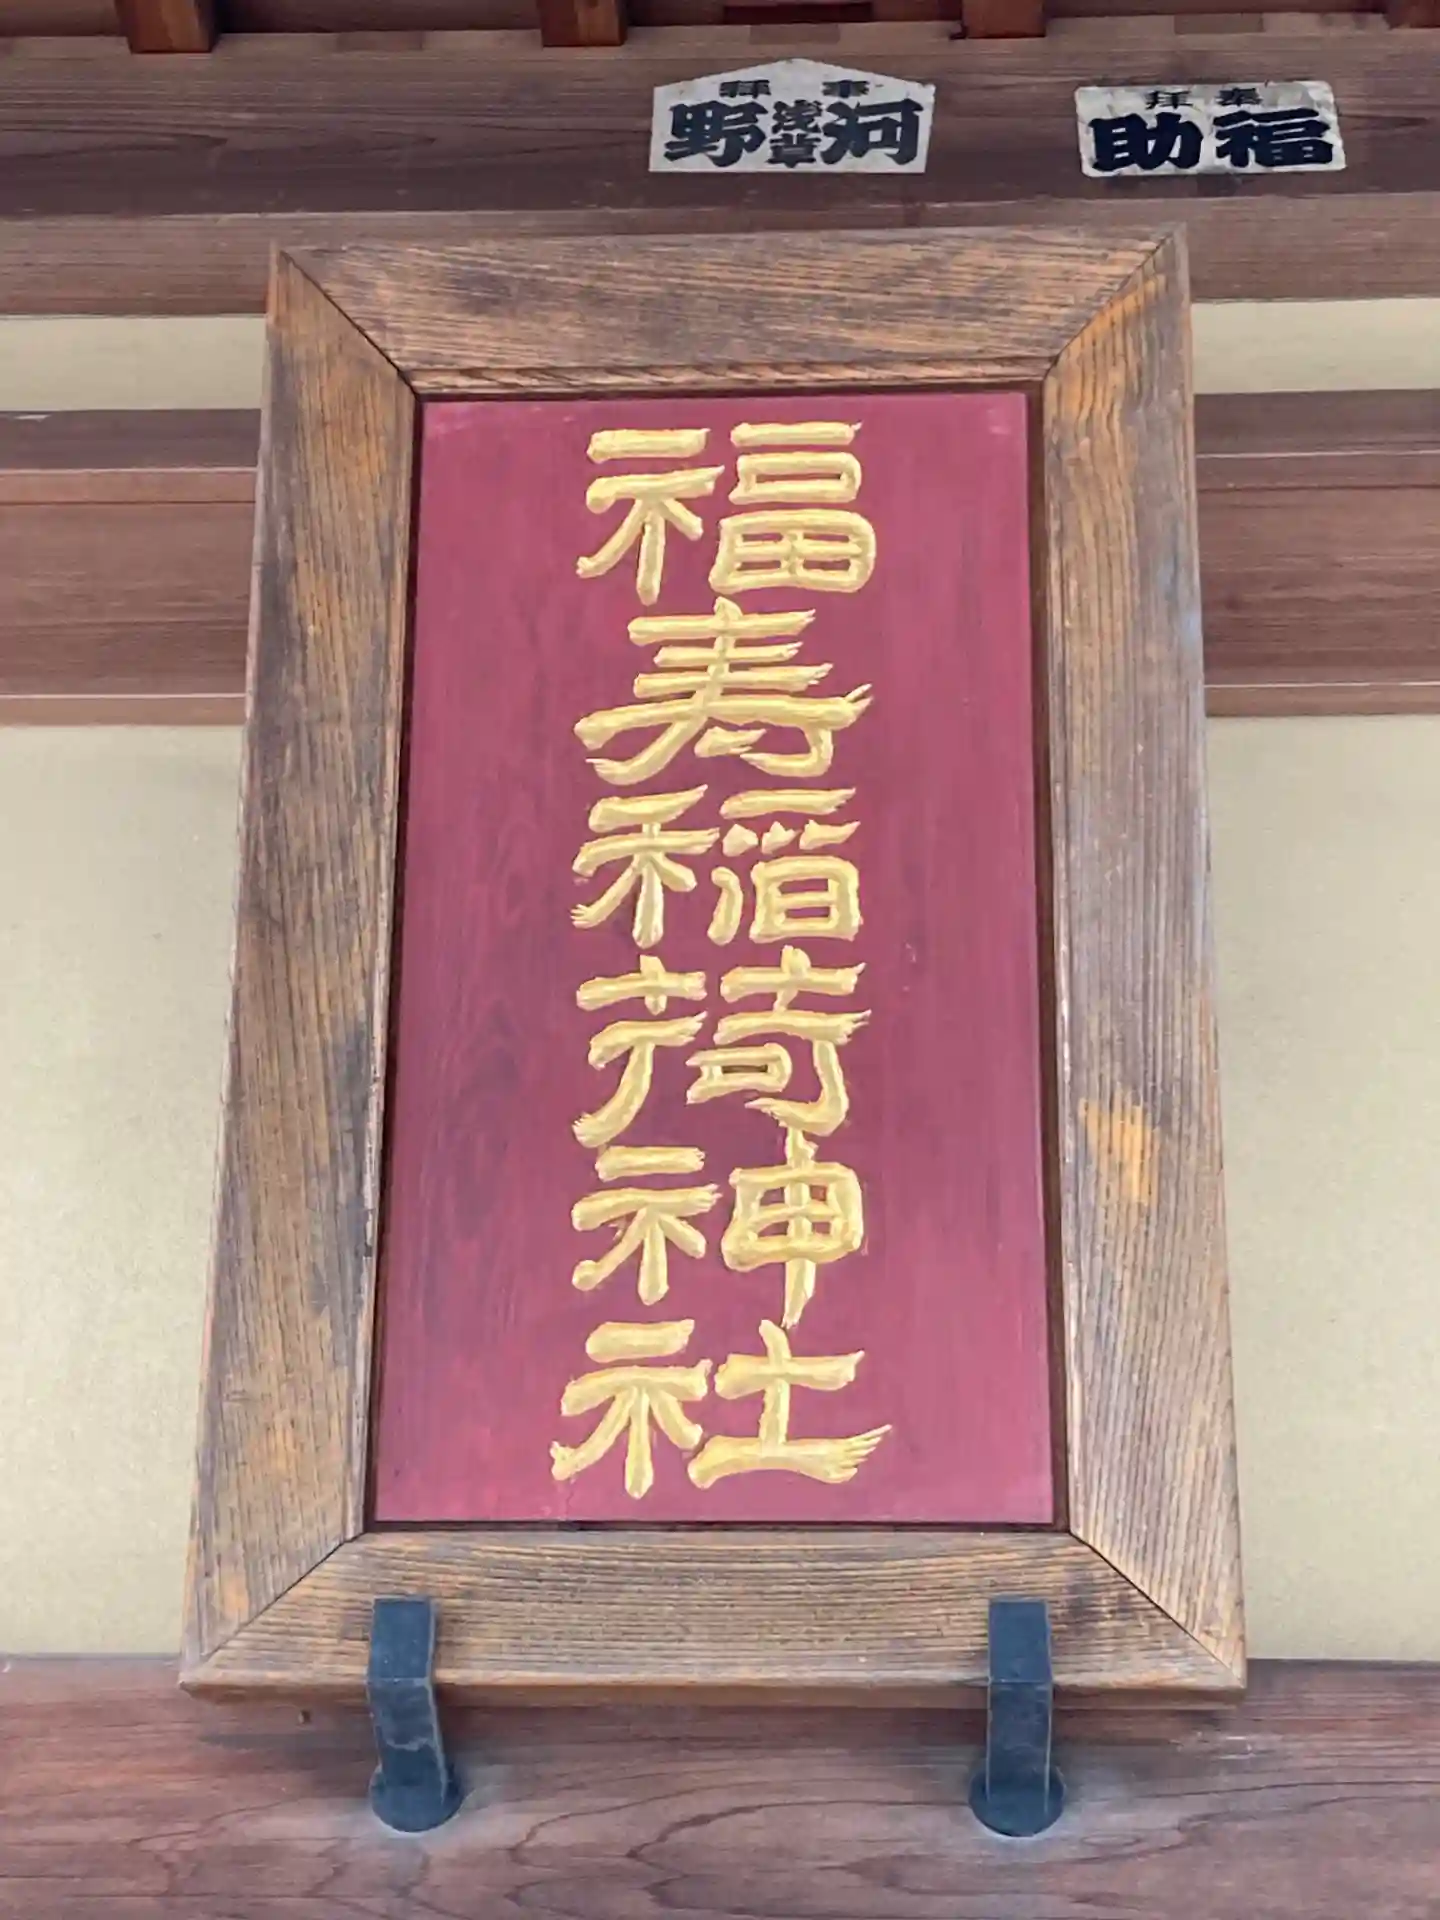 奉拝
河野
浅草
奉拝
福助
福寿稲荷神社